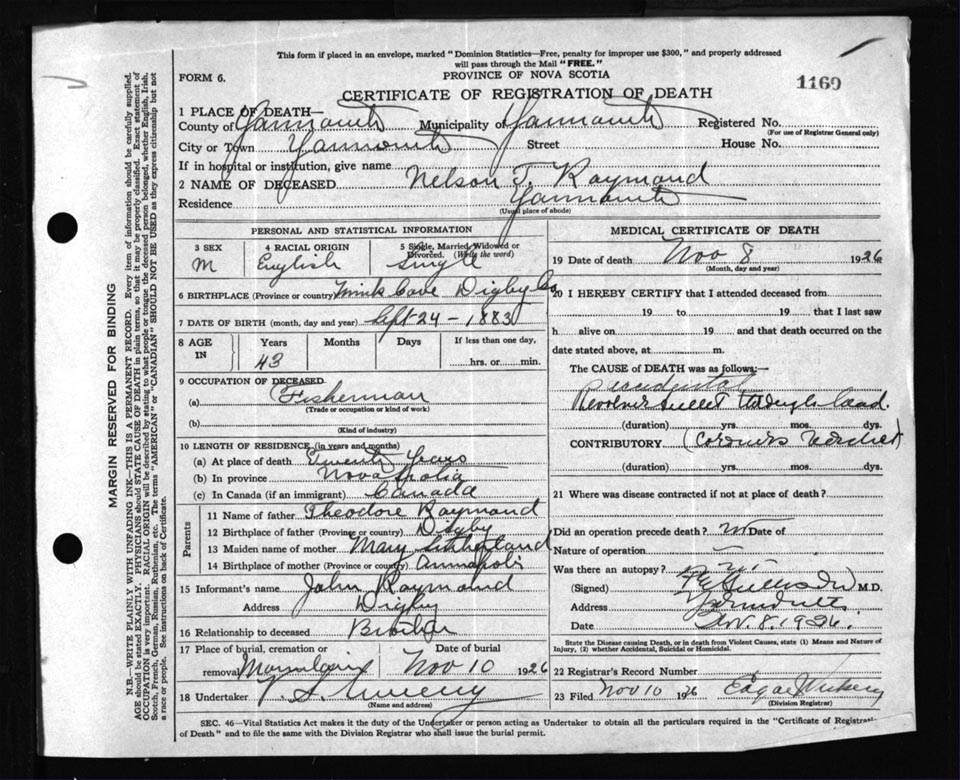 This form if placed in an envelope, marked "Dominion Statistics—Free, penalty for improper use $300," and properly addressed
will pass through the Mail "FREE."
FORM 6.
PROVINCE OF NOVA SCOTIA
1169
CERTIFICATE OF REGISTRATION OF DEATH
1 PLACE OF DEATH—
County of Yarmouth Municipality of Yarmouth Registered No.
(For use of Registrar General only)
City or Town Yarmouth Street House No.
If in hospital or institution, give name
2 NAME OF DECEASED Nelson T. Raymond
Residence Yarmouth
(Usual place of abode)
PERSONAL AND STATISTICAL INFORMATION
3 SEX 4 RACIAL ORIGIN 5 Single, Married, Widowed or
Divorced. (Write the word)
M English Single
6 BIRTHPLACE (Province or country) Mink Cove Digby Co
7 DATE OF BIRTH (month, day and year) Sept 24 - 1883
8 AGE IN Years Months Days If less than one day,
43 hrs. or min.
9 OCCUPATION OF DECEASED
(a) Fisherman
(Trade or occupation or kind of work)
(b)
(Kind of industry)
10 LENGTH OF RESIDENCE (in years and months)
(a) At place of death Twenty Years
(b) In province Nova Scotia
(c) In Canada (if an immigrant) Canada
Parents
11 Name of father Theodore Raymond
12 Birthplace of father (Province or country) Digby
13 Maiden name of mother Mary Sutherland
14 Birthplace of mother (Province or country) Annapolis
15 Informant's name John Raymond
Address Digby
16 Relationship to deceased Brother
17 Place of burial, cremation or Date of burial
removal Nov 10 1926
18 Undertaker
(Name and address)
MEDICAL CERTIFICATE OF DEATH
19 Date of death Nov 8 1926
(Month, day and year)
20 I HEREBY CERTIFY that I attended deceased from
19 to 19 that I last saw
h alive on 19 and that death occurred on
date stated above, at m.
The CAUSE of DEATH was as follows:—
Accidental
Revolver bullet through head.
(duration) yrs. mos. dys.
CONTRIBUTORY (Coroners Verdict
(duration) yrs. mos. dys.
21 Where was disease contracted if not at place of death?
Did an operation precede death? No Date of
Nature of operation —
Was there an autopsy? No
(Signed) M.D.
Address Yarmouth
Date Nov 8 1926.
State the Disease causing Death, or in Death from Violent Causes, state (1) Means and Nature of
Injury, (2) whether Accidental, Suicidal or Homicidal.
22 Registrar's Record Number
23 Filed Nov 10 1926 Edgar
(Division Registrar)
SEC. 46—Vital Statistics Act makes it the duty of the Undertaker or person acting as Undertaker to obtain all the particulars required in the "Certificate of Registration
of Death" and to file the same with the Division Registrar who shall issue the burial permit.
MARGIN RESERVED FOR BINDING
N.B.—WRITE PLAINLY WITH UNFADING INK—THIS IS A PERMANENT RECORD. Every item of information should be carefully supplied.
AGE should be stated EXACTLY. PHYSICIANS should STATE CAUSE OF DEATH in plain terms, so that it may be properly classified. Exact statement of
OCCUPATION is very important. RACIAL ORIGIN will be described by stating to what people or tongue the deceased person belonged, whether English, Irish,
Scotch, French, German, Russian, Ruthenian, etc. The terms "AMERICAN" or "CANADIAN" SHOULD NOT BE USED as they express citizenship but not
a race or people. See instructions on back of Certificate.